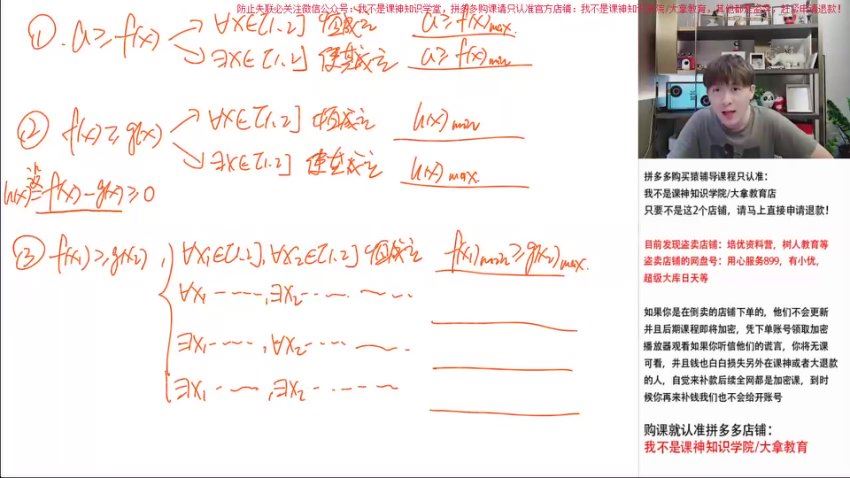 防止失联必关注微信公众号:我不是课神知识学堂,拼多多购课请只认准官方店铺:我不是课神知识学院/大拿教育,其他都是盗卖,赶紧申请退款!
① a≥f(x) ∀x∈[1,2] 恒成立 a≥f(x)max
∃x∈[1,2] 使其成立 a≥f(x)min
② f(x)≥g(x) ∀x∈[1,2] 恒成立 h(x)min
∃x∈[1,2] 使其成立 h(x)max
设 h(x)=f(x)-g(x)≥0
③ f(x1)≥g(x2), ∀x1∈[1,2],∀x2∈[1,2] 恒成立 f(x1)min≥g(x2)max.
∀x1 ----,∃x2 ----
∃x1 ----,∀x2 ----
∃x1 ----,∃x2 ----
拼多多购买猿辅导课程只认准:
我不是课神知识学院/大拿教育店
只要不是这2个店铺,请马上直接申请退款!
目前发现盗卖店铺:培优资料营,树人教育等
盗卖店铺的网盘号:用心服务899,有小优,
超级大库日天等
如果你是在倒卖的店铺下单的,他们不会更新
并且后期课程即将加密,凭下单账号领取加密
播放器观看如果你听信他们的谎言,你将无课
可看,并且钱也白白损失另外在课神或者大退款
的人,自觉来补款后续全网都是加密课,到时
候你再来补钱我们也不会给开账号
购课就认准拼多多店铺:
我不是课神知识学院/大拿教育